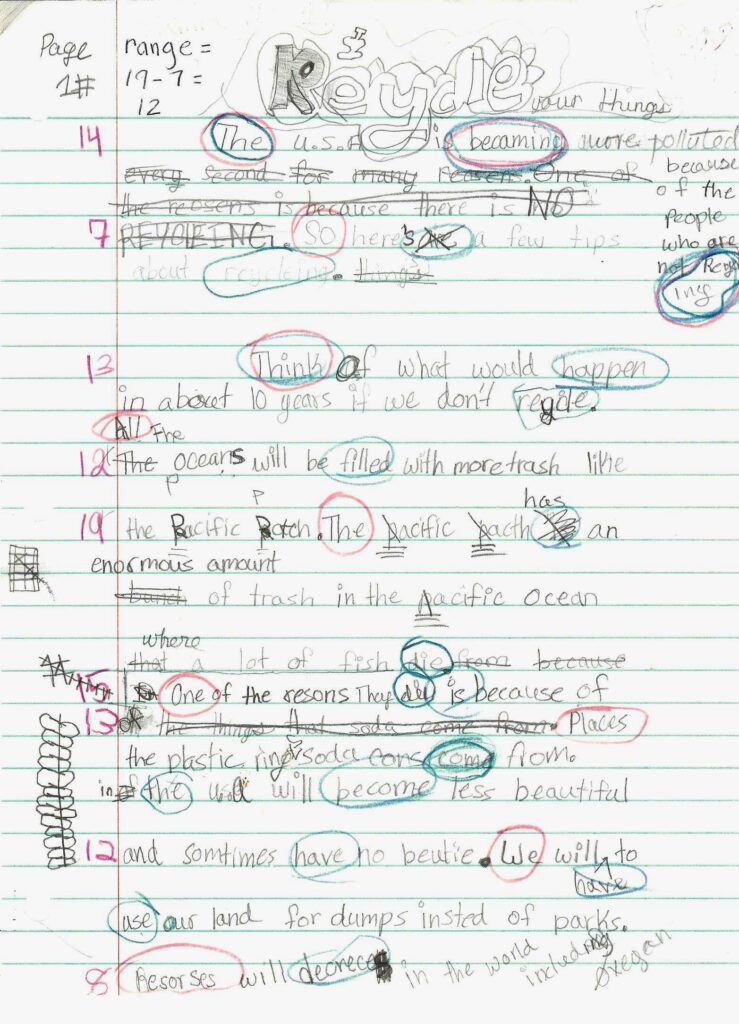 Page 1#
range =
19-7=
12
Recycle your things
14 The U.S.A is becaming more polluted
every second for many reasens. One of because
the reosens is because there is NO of the
People
7 REYCLEING. SO here's a few tips who are
about reycleing. things not Recy
ing
13 Think Of what would happen
in about 10 years if we don't regcle.
All The
12 The oceans will be filled with more trash like
P P has
19 the Pacific Patch. The pacific pacth an
enormous amount
bunch of trash in the pacific ocean
where
that a lot of fish die from because
15 One of the resons They die is because of
13 of the things that soda come from. Places
the plastic rings soda cans come from.
in the usa will become less beautiful
12 and somtimes have no beutie. We will to
have
use our land for dumps insted of parks.
8 Resorses will decreces in the world including Oregan